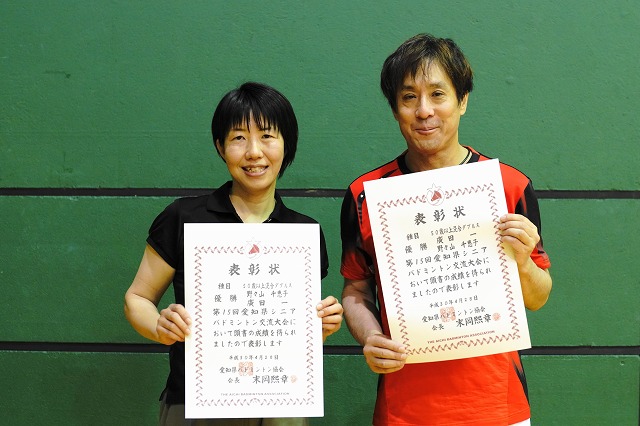 表彰状
種目 50歳以上混合ダブルス
優勝 野々山 千恵子
廣田 一
第15回愛知県シニア
バドミントン交流大会に
おいて頭書の成績を得られ
ましたので表彰します
平成30年4月20日
愛知県バドミントン協会
会長 末岡熙章
THE AICHI BADMINTON ASSOCIATION
表彰状
種目 50歳以上混合ダブルス
優勝 廣田 一
野々山 千恵子
第15回愛知県シニア
バドミントン交流大会に
おいて頭書の成績を得られ
ましたので表彰します
平成30年4月20日
愛知県バドミントン協会
会長 末岡熙章
THE AICHI BADMINTON ASSOCIATION